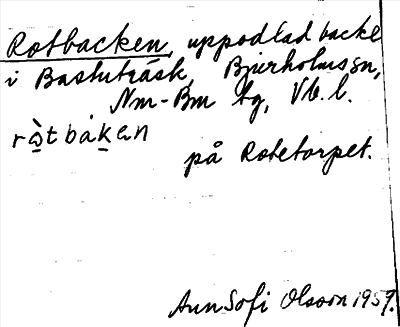 Rotbacken, uppodlad backe
i Bastuträsk, Bjurholms sn,
Nm-Bm tg, Vb. l.
ròtbáken
på Rotetorpet.
Ann Sofi Olsson 1959.